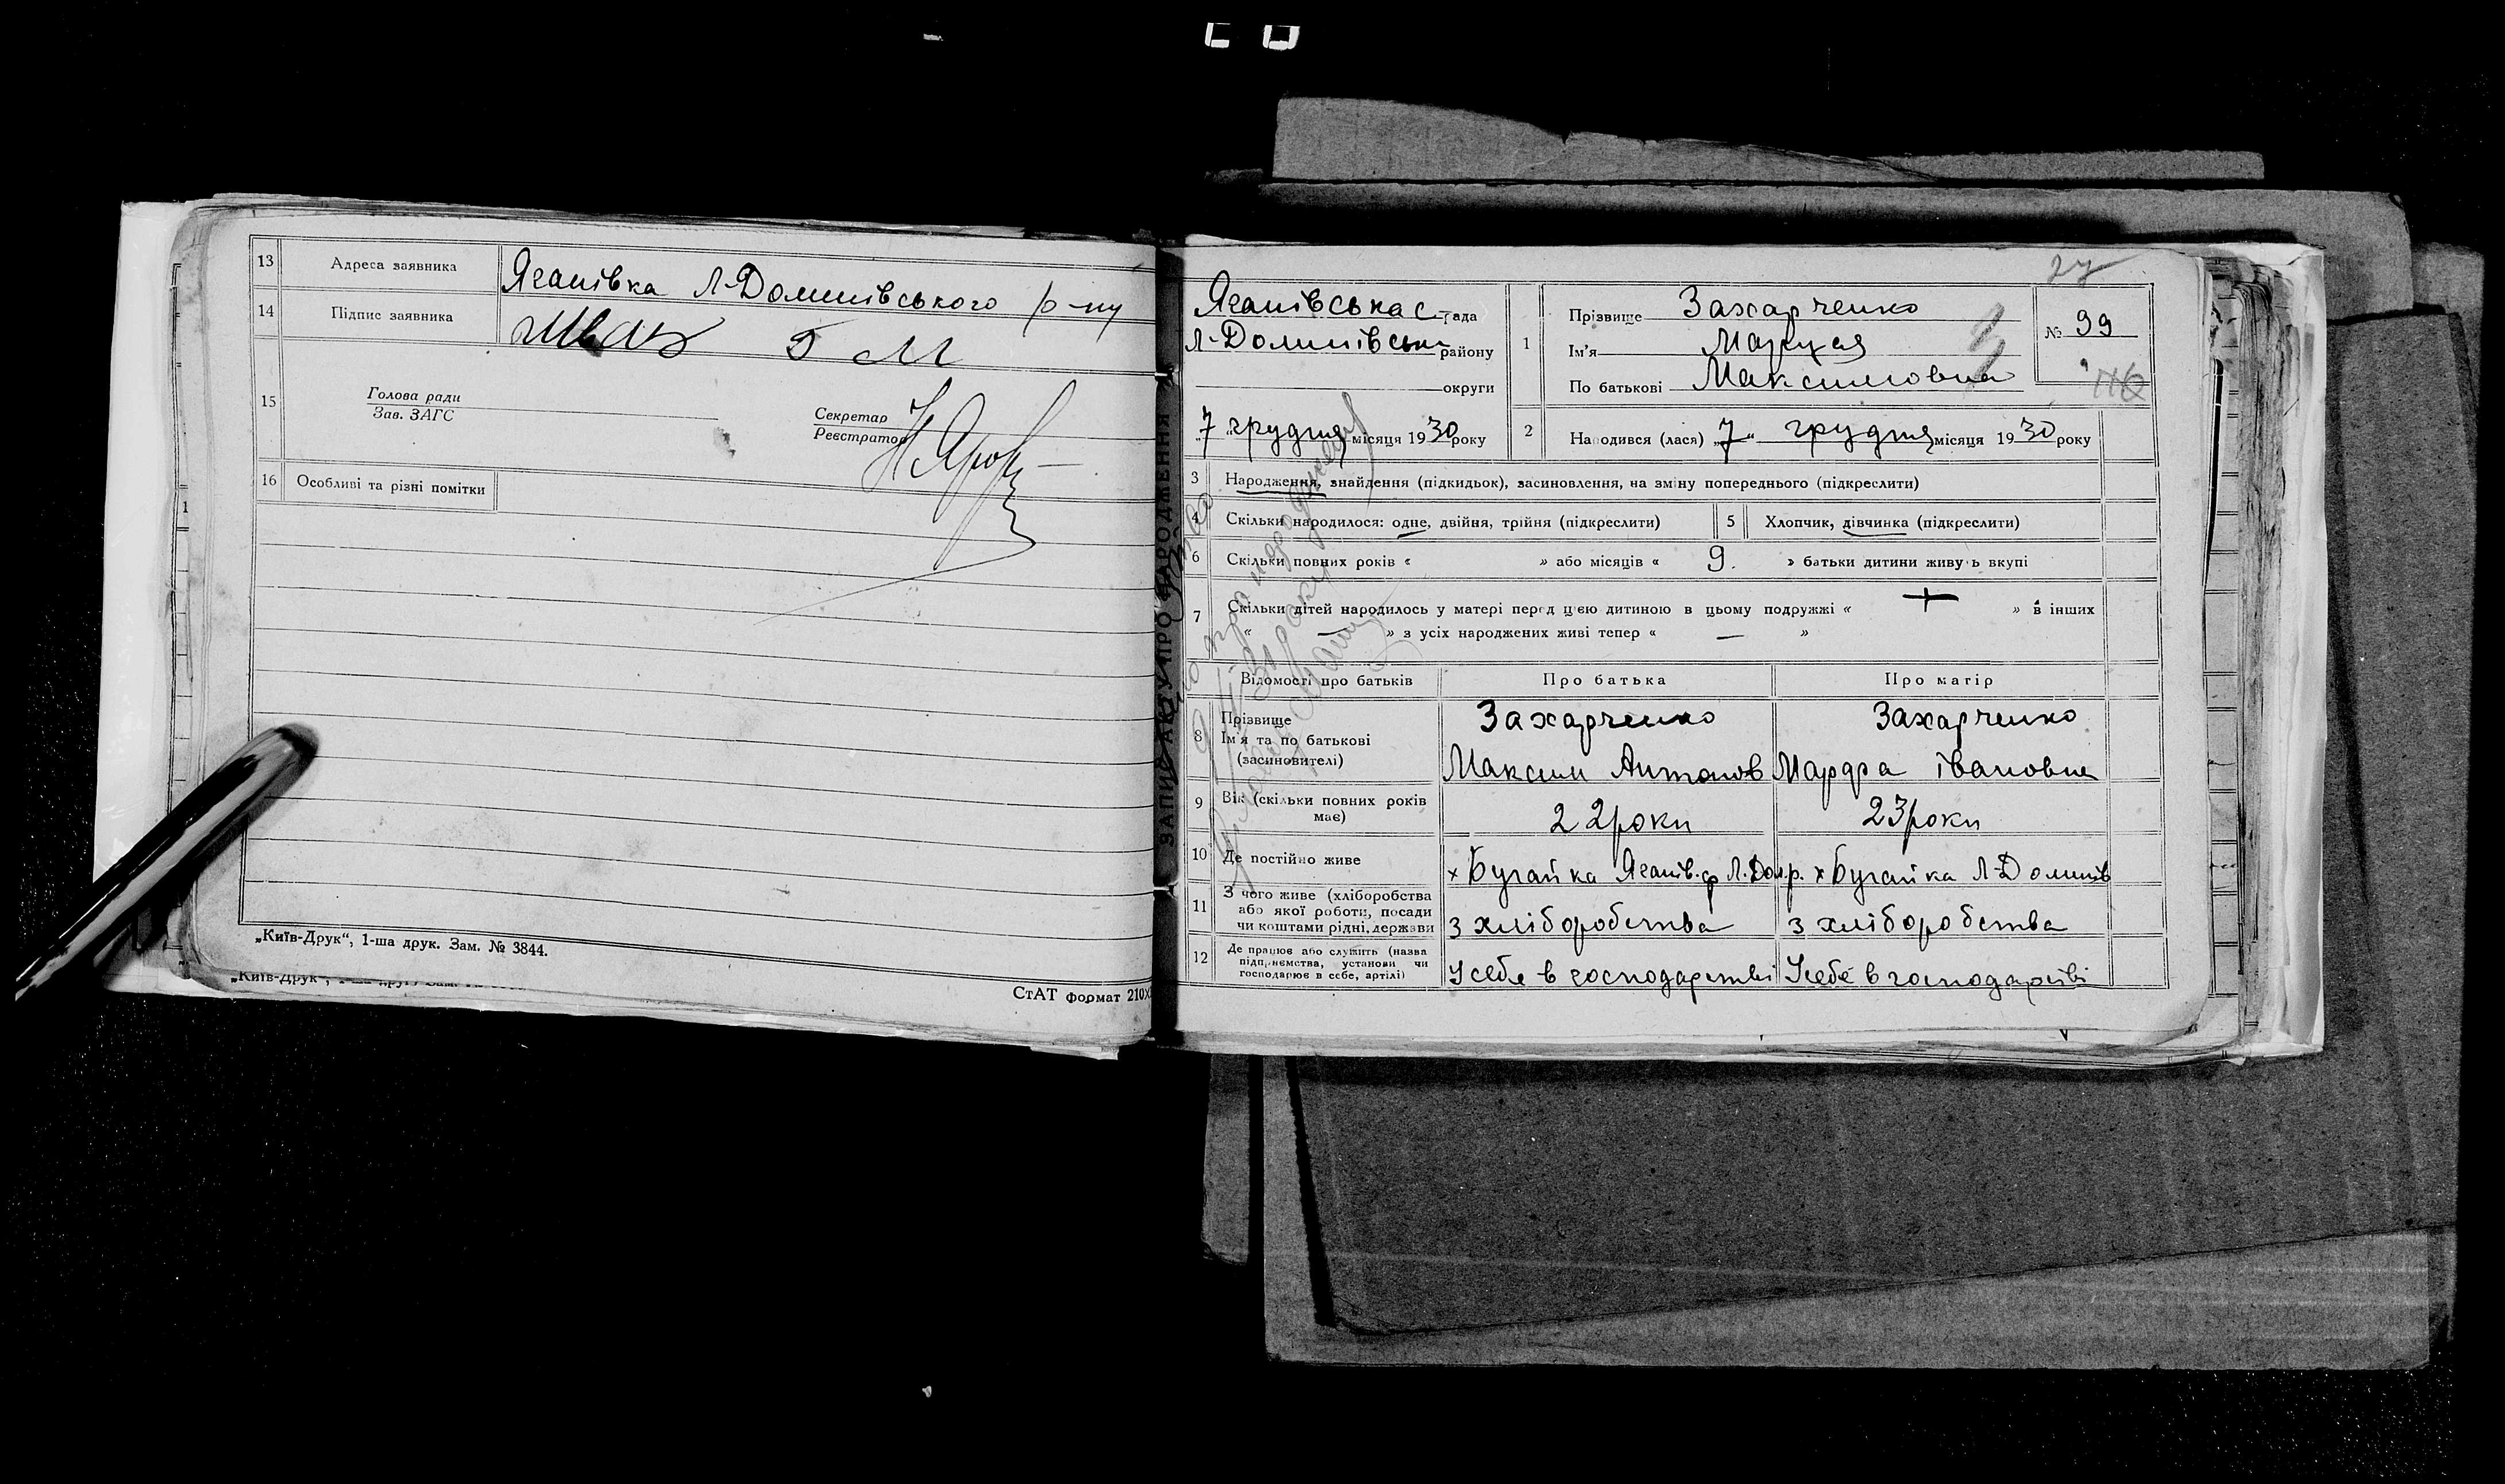 13 Адреса заявника Яганівка Л-Долинівського р-ну
14 Підпис заявника
15 Голова ради
Зав. ЗАГС
Секретар
Реєстратор
16 Особливі та різні помітки
„Київ-Друк“, 1-ша друк. Зам. № 3844.
СтАТ формат 210
ЗАПИС АКТУ ПРО НАРОДЖЕННЯ
27
Яганівська с-рада
Л-Долинівськ району
округи
„7 грудня місяця 1930 року
1 Прізвище Захарченко
Ім'я Маруся
По батькові Максимовна
№ 99
116
2 Народився (лася) „7“ грудня місяця 1930 року
3 Народження, знайдення (підкидьок), засиновлення, на зміну попереднього (підкреслити)
4 Скільки народилося: одне, двійня, трійня (підкреслити) 5 Хлопчик, дівчинка (підкреслити)
6 Скільки повних років « » або місяців « 9. » батьки дитини живуть вкупі
7 Скільки дітей народилось у матері перед цією дитиною в цьому подружжі « + » в інших
« — » з усіх народжених живі тепер « — »
Відомості про батьків Про батька Про матір
8 Прізвище Захарченко Захарченко
Ім'я та по батькові
(засиновителі) Максим Антонов Марфа Івановна
9 Вік (скільки повних років
має) 22 роки 23 роки
10 Де постійно живе х Бугайка Яганів. Л. Дол. р. х Бугайка Л-Долинів
11 З чого живе (хліборобства
або якої роботи, посади
чи коштами рідні, держави з хліборобства з хліборобства
12 Де працює або служить (назва
підприємства, установи чи
господарює в себе, артілі) У себе в господарстві У себе в господарстві